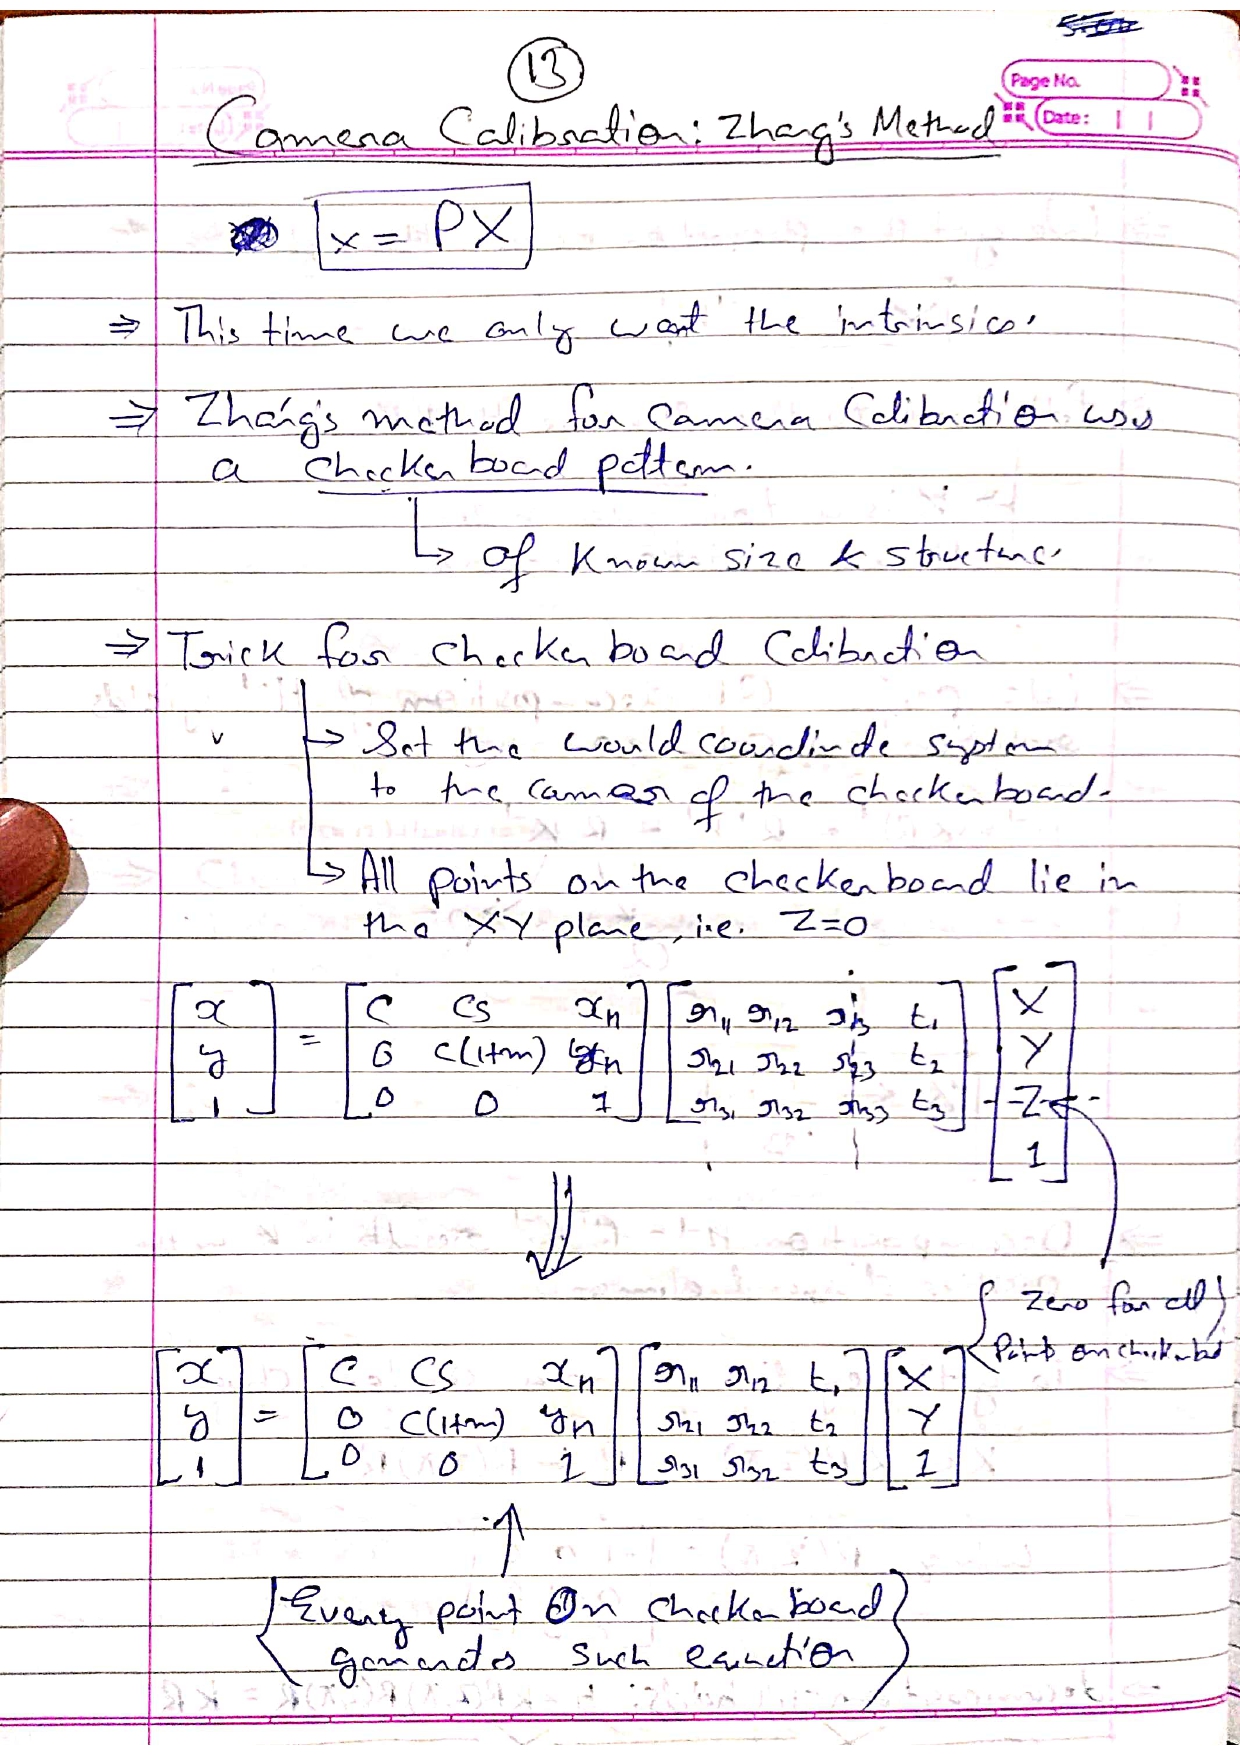 13
Page No.
Date:
Camera Calibration: Zhang's Method
x = PX
⇒ This time we only want the intrinsics.
⇒ Zhang's method for Camera Calibration uses
a checkerboard pattern.
↳ of known size & structure.
⇒ Trick for checkerboard Calibration
→ Set the world coordinate system
to the corner of the checkerboard.
↳ All points on the checkerboard lie in
the XY plane, i.e. Z=0
[x y 1] = [C CS x_H; 0 C(1+m) y_H; 0 0 1] [r11 r12 r13 t1; r21 r22 r23 t2; r31 r32 r33 t3] [X Y Z 1]
⇓
{ Zero for all }
Points on checkerbd
[x y 1] = [C CS x_H; 0 C(1+m) y_H; 0 0 1] [r11 r12 t1; r21 r22 t2; r31 r32 t3] [X Y 1]
↑
{ Every point On checkerboard
generates such equation }